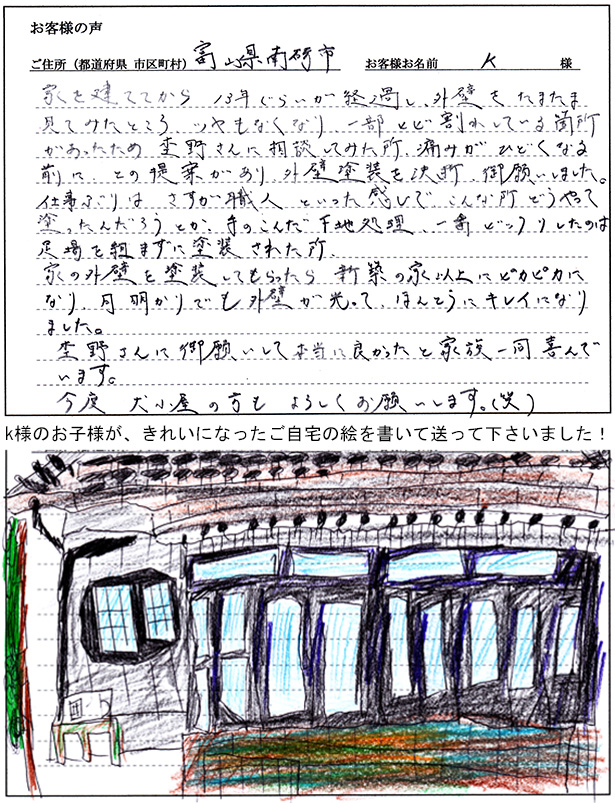 お客様の声
ご住所（都道府県 市区町村）富山県南砺市 お客様お名前 K 様
家を建ててから 13年ぐらいが経過し、外壁をたまたま
見てみたところ ツヤもなくなり 一部ヒビ割れしている箇所
があったため 埜野さんに相談してみた所、痛みがひどくなる
前に との提案があり、外壁塗装を決断、御願いしました。
仕事ぶりは さすが職人 といった感じで こんな所どうやって
塗ったんだろうとか、手のこんだ下地処理、一番ビックリしたのは
足場を組まずに塗装された所、
家の外壁を塗装してもらったら 新築の家以上にピカピカに
なり、月明かりでも外壁が光って、ほんとうにキレイになり
ました。
埜野さんに御願いして本当に良かったと家族一同喜んで
います。
今度 犬小屋の方も よろしくお願いします。(笑)
k様のお子様が、きれいになったご自宅の絵を書いて送って下さいました！